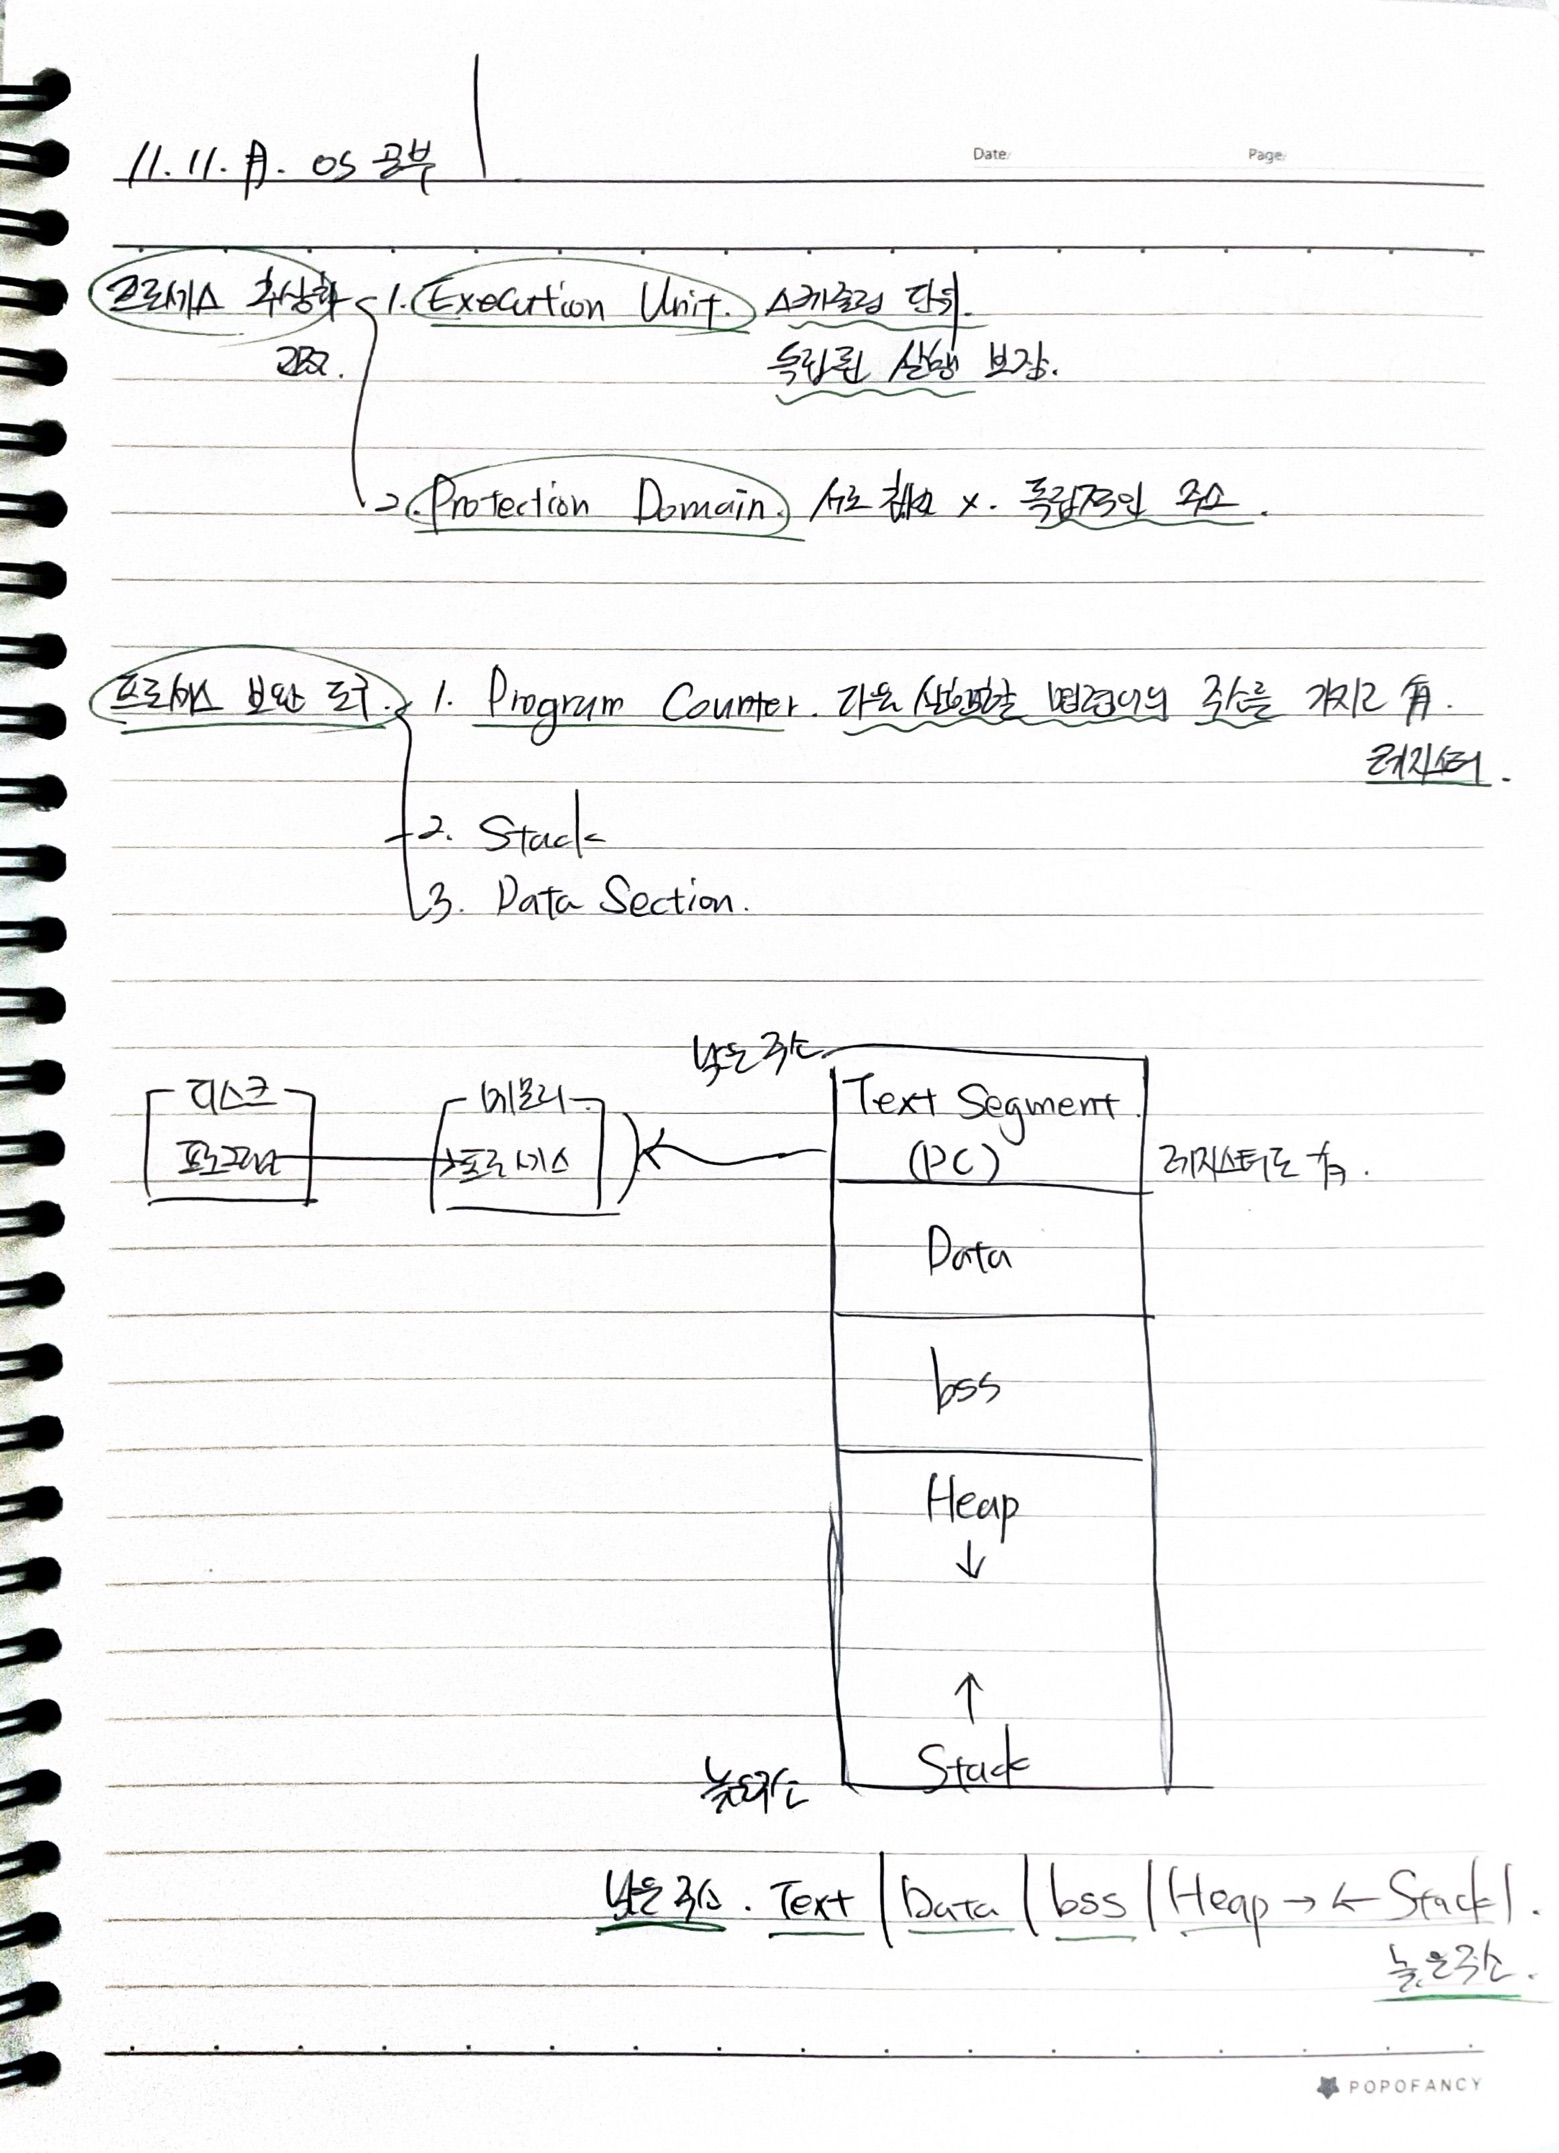 11. 11. 月. OS 공부
Date/
Page/
프로세스 추상화 1. Execution Unit. 스케줄링 단위.
독립된 실행 보장.
2. Protection Domain. 서로 침범 x. 독립적인 주소.
프로세스 보완 도구. 1. Program Counter. 다음 실행할 명령어의 주소를 가지고 有.
레지스터.
2. Stack
3. Data Section.
낮은 주소
디스크 메모리 Text Segment.
프로그램 프로세스 (PC) 레지스터도 有.
Data
bss
Heap
↓
↑
Stack
높은주소
낮은 주소. Text | Data | bss | Heap → ← Stack |.
높은주소.
POPOFANCY